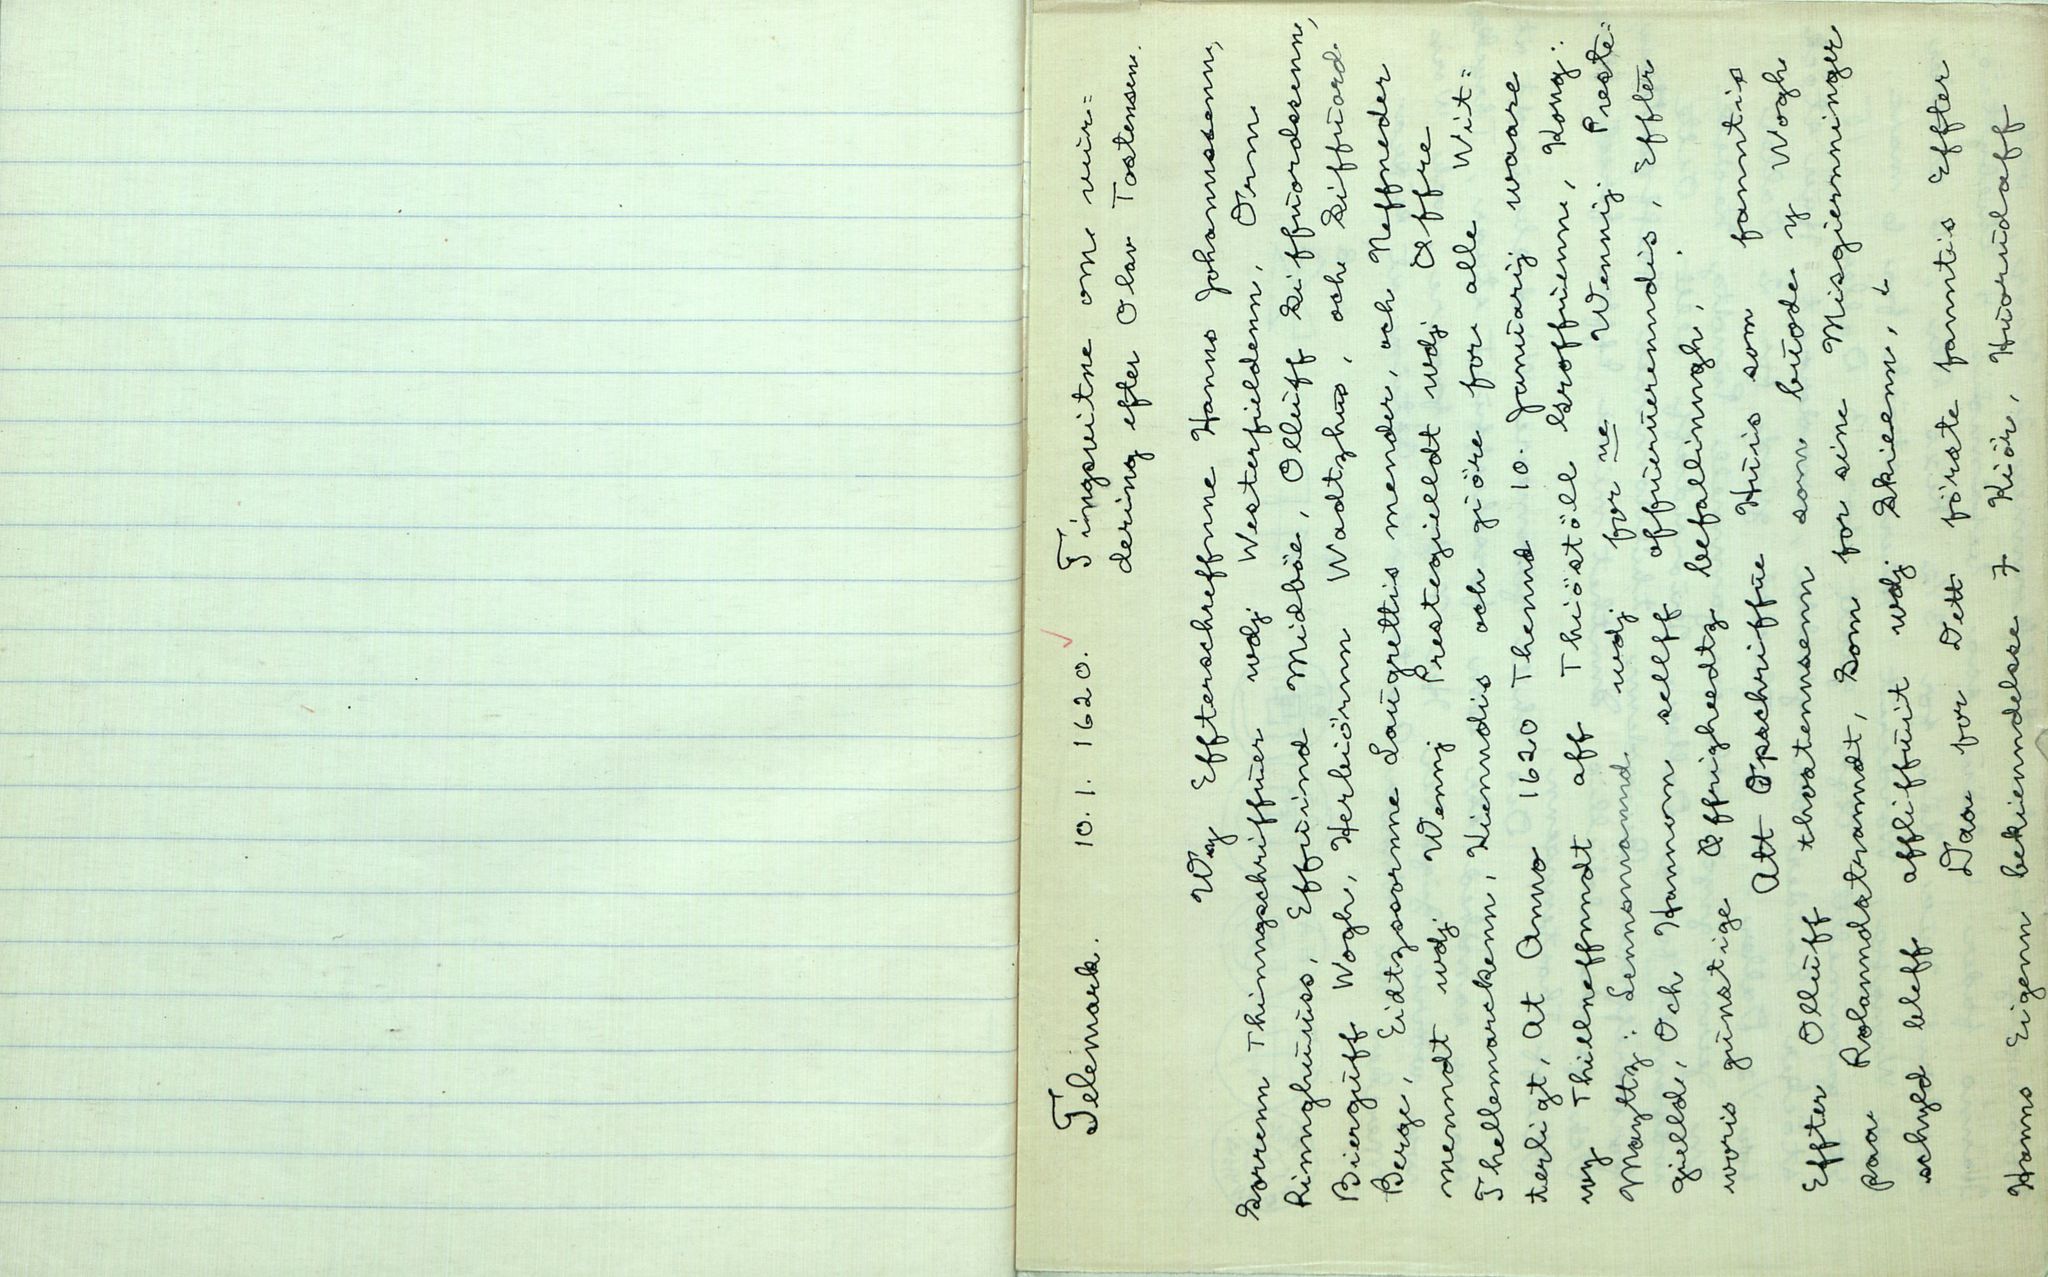 Telemark. 10.1.1620. Tingsvitne om vur=
dering efter Olav Tostensen.
Wy Effterschreffne Hanns Johannssenn,
Sorrenn Thinngschriffuer wdj Westerfieldenn, Orm
Rinnghuuss, Effuind Midböe, Olluff Siffuordsenn,
Bierguff Wogh, Herbiönn Wadtzhus, och Siffuord
Berge, Eidtzsorne Laugrettis mender, och Neffneder
menndt wdj Wenj Prestegielldt wdj Øffre
Thellemarckenn, Kienndis och giöre for alle Wit=
terligt, At Anno 1620 Thennd 10. Januarij ware
wy Thillneffnndt aff Thiöstöll Groffuenn, Kong:
Mayttz: Lennsmannd wdj for ne Wennij Preste=
gielld, Och Hannom sellff offueruerenndis, Effter
woris gunstige Øffrigheedtz befallinngh,
Att Opschriffue Huis som fanntis
Effter Olluff thostennsenn som buode y Wogh
paa Rolanndstranndt, Som for sine Misgierninnger
schyld bleff affliffuit wdj Skienn,
Daa for Dett förste fantis Effter
Hanns Eigenn bekienndelsse 7 Kiör, Huorudaff